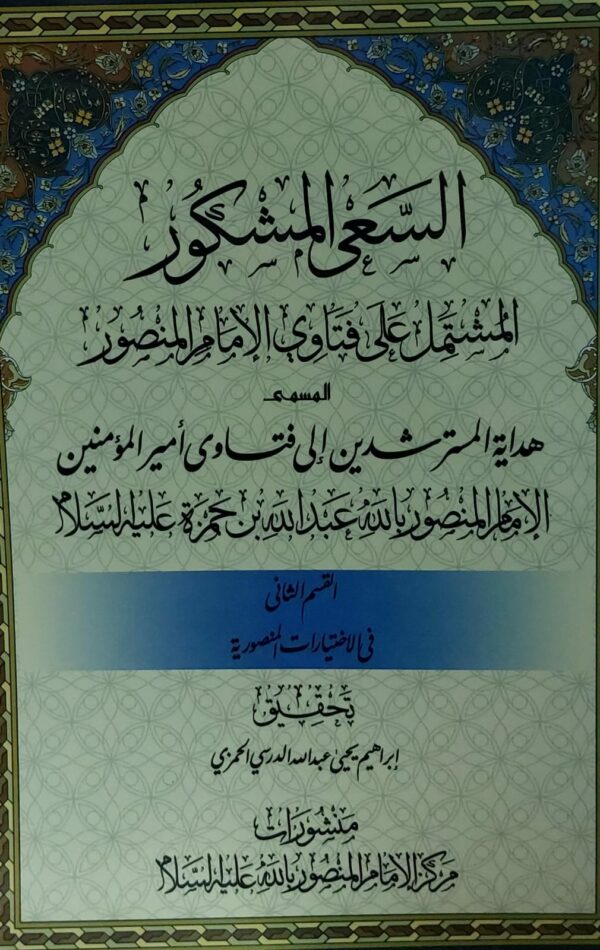 السَّعي المشكُور
المُشتمل عَلى فتاوي الإمام المنصُور
المسمى
هداية المسترشدين إلى فتاوى أمير المؤمنين
الإمام المنصُور بالله عَبد الله بن حَمزة عَليه السَّلام
القسم الثاني
في الاختيارات المنصورية
تحقيق
إبراهيم يحيى عبدالله الدرسي الحمزي
منشورات
مركز الإمام المنصُور بالله عَليه السَّلام